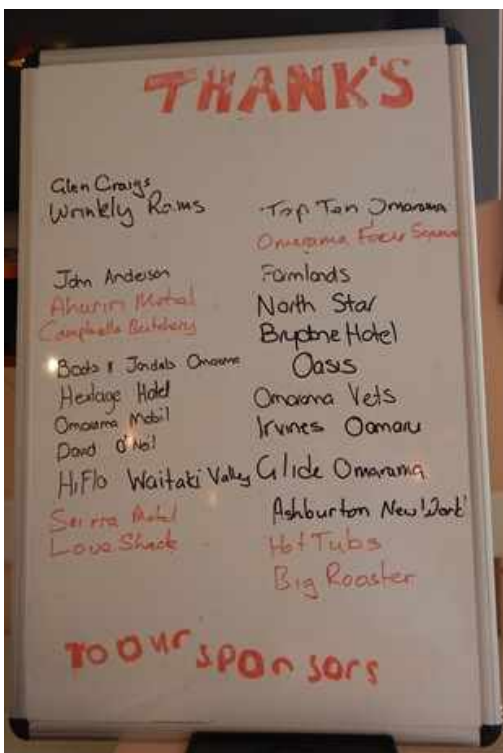 THANK'S
Glen Craigs
Wrinkly Rams
John Anderson
Ahuriri Motel
Campbells Butchery
Boots & Jandals Omarama
Heritage Hotel
Omarama Mobil
David O'Neil
HiFlo Waitaki Valley
Sierra Motel
Love Shack
Top Ten Omarama
Omarama Four Square
Farmlands
North Star
Brydone Hotel
Oasis
Omarama Vets
Irvines Oamaru
Glide Omarama
Ashburton New World
Hot Tubs
Big Roaster
TO OUR sponsors